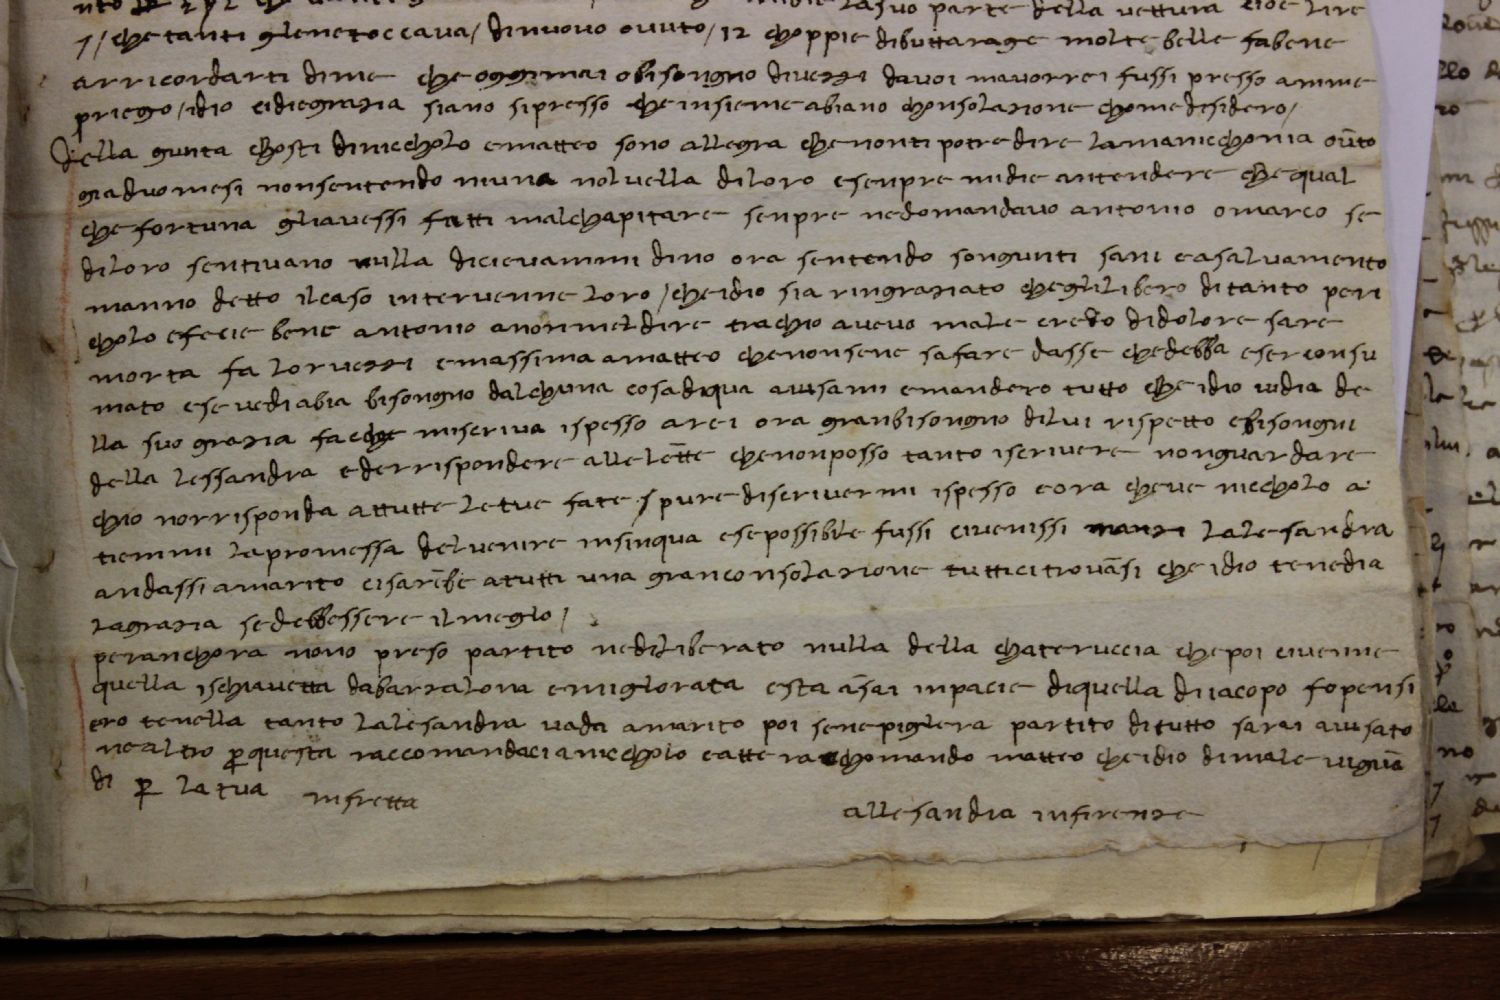 lasuo parte della vettura cioe lire
7 / che tanti glenetoccava / dinuovo ovuto / 12 choppie dibuttarage molte belle fabene
arricordarti dime che oggimai obisongno divezzi davoi mavorrei fussi presso amme
priego / idio cidiegrazia siano sipresso che insieme abiano chonsolazione chome disidero /
Della gunta chosti dinicholo ematteo sono allegra chenonti potre dire lamanichonia outo
gia duomesi nonsentendo niuna nolvella diloro esenpre midie antendere che qual
che fortuna gliavessi fatti malchapitare senpre nedomandavo antonio omarco se
diloro sentivano nulla dicievammi dino ora sentendo songunti sani easalvamento
manno detto ilcaso intervenne loro / cheidio sia ringraziato cheglilibero ditanto peri
cholo efecie bene antonio anonmeldire trachio avevo male credo didolore sare
morta fa lorvezzi emassima amatteo chenonsene safare dasse chedebba eserconsu
mato esevediabia bisongno dalchuna cosadiqua avisami emandero tutto che idio vidia de
lla suo grazia fa che miscriva ispesso arei ora granbisongno dilui rispetto ebisongni
della lessandra ederrispondere allelette chenonposso tanto iscrivere nonguardare
chio norrisponda attutte letue fate / pure discrivermi ispesso eora cheve nicholo a
tiemmi lapromessa delvenire insinqua esepossibile fussi civenissi manzi lalesandra
andassi amarito cisarebe atutti una granconsolazione tutticitrovasi che idio tenedia
lagrazia sedebbessere ilmeglo /
peranchora nono preso partito nediliberato nulla della chateruccia chepoi civenne
quella ischiavetta dabarzalona emiglorata esta asai inpacie diquella diiacopo fopensi
ero tenella tanto lalesandra vada amarito poi senepiglera partito ditutto sarai avisato
nealtro per questa raccomandaci anicholo eatte rachomando matteo cheidio dimale viguar
di per latua infretta
allesandra infirenze